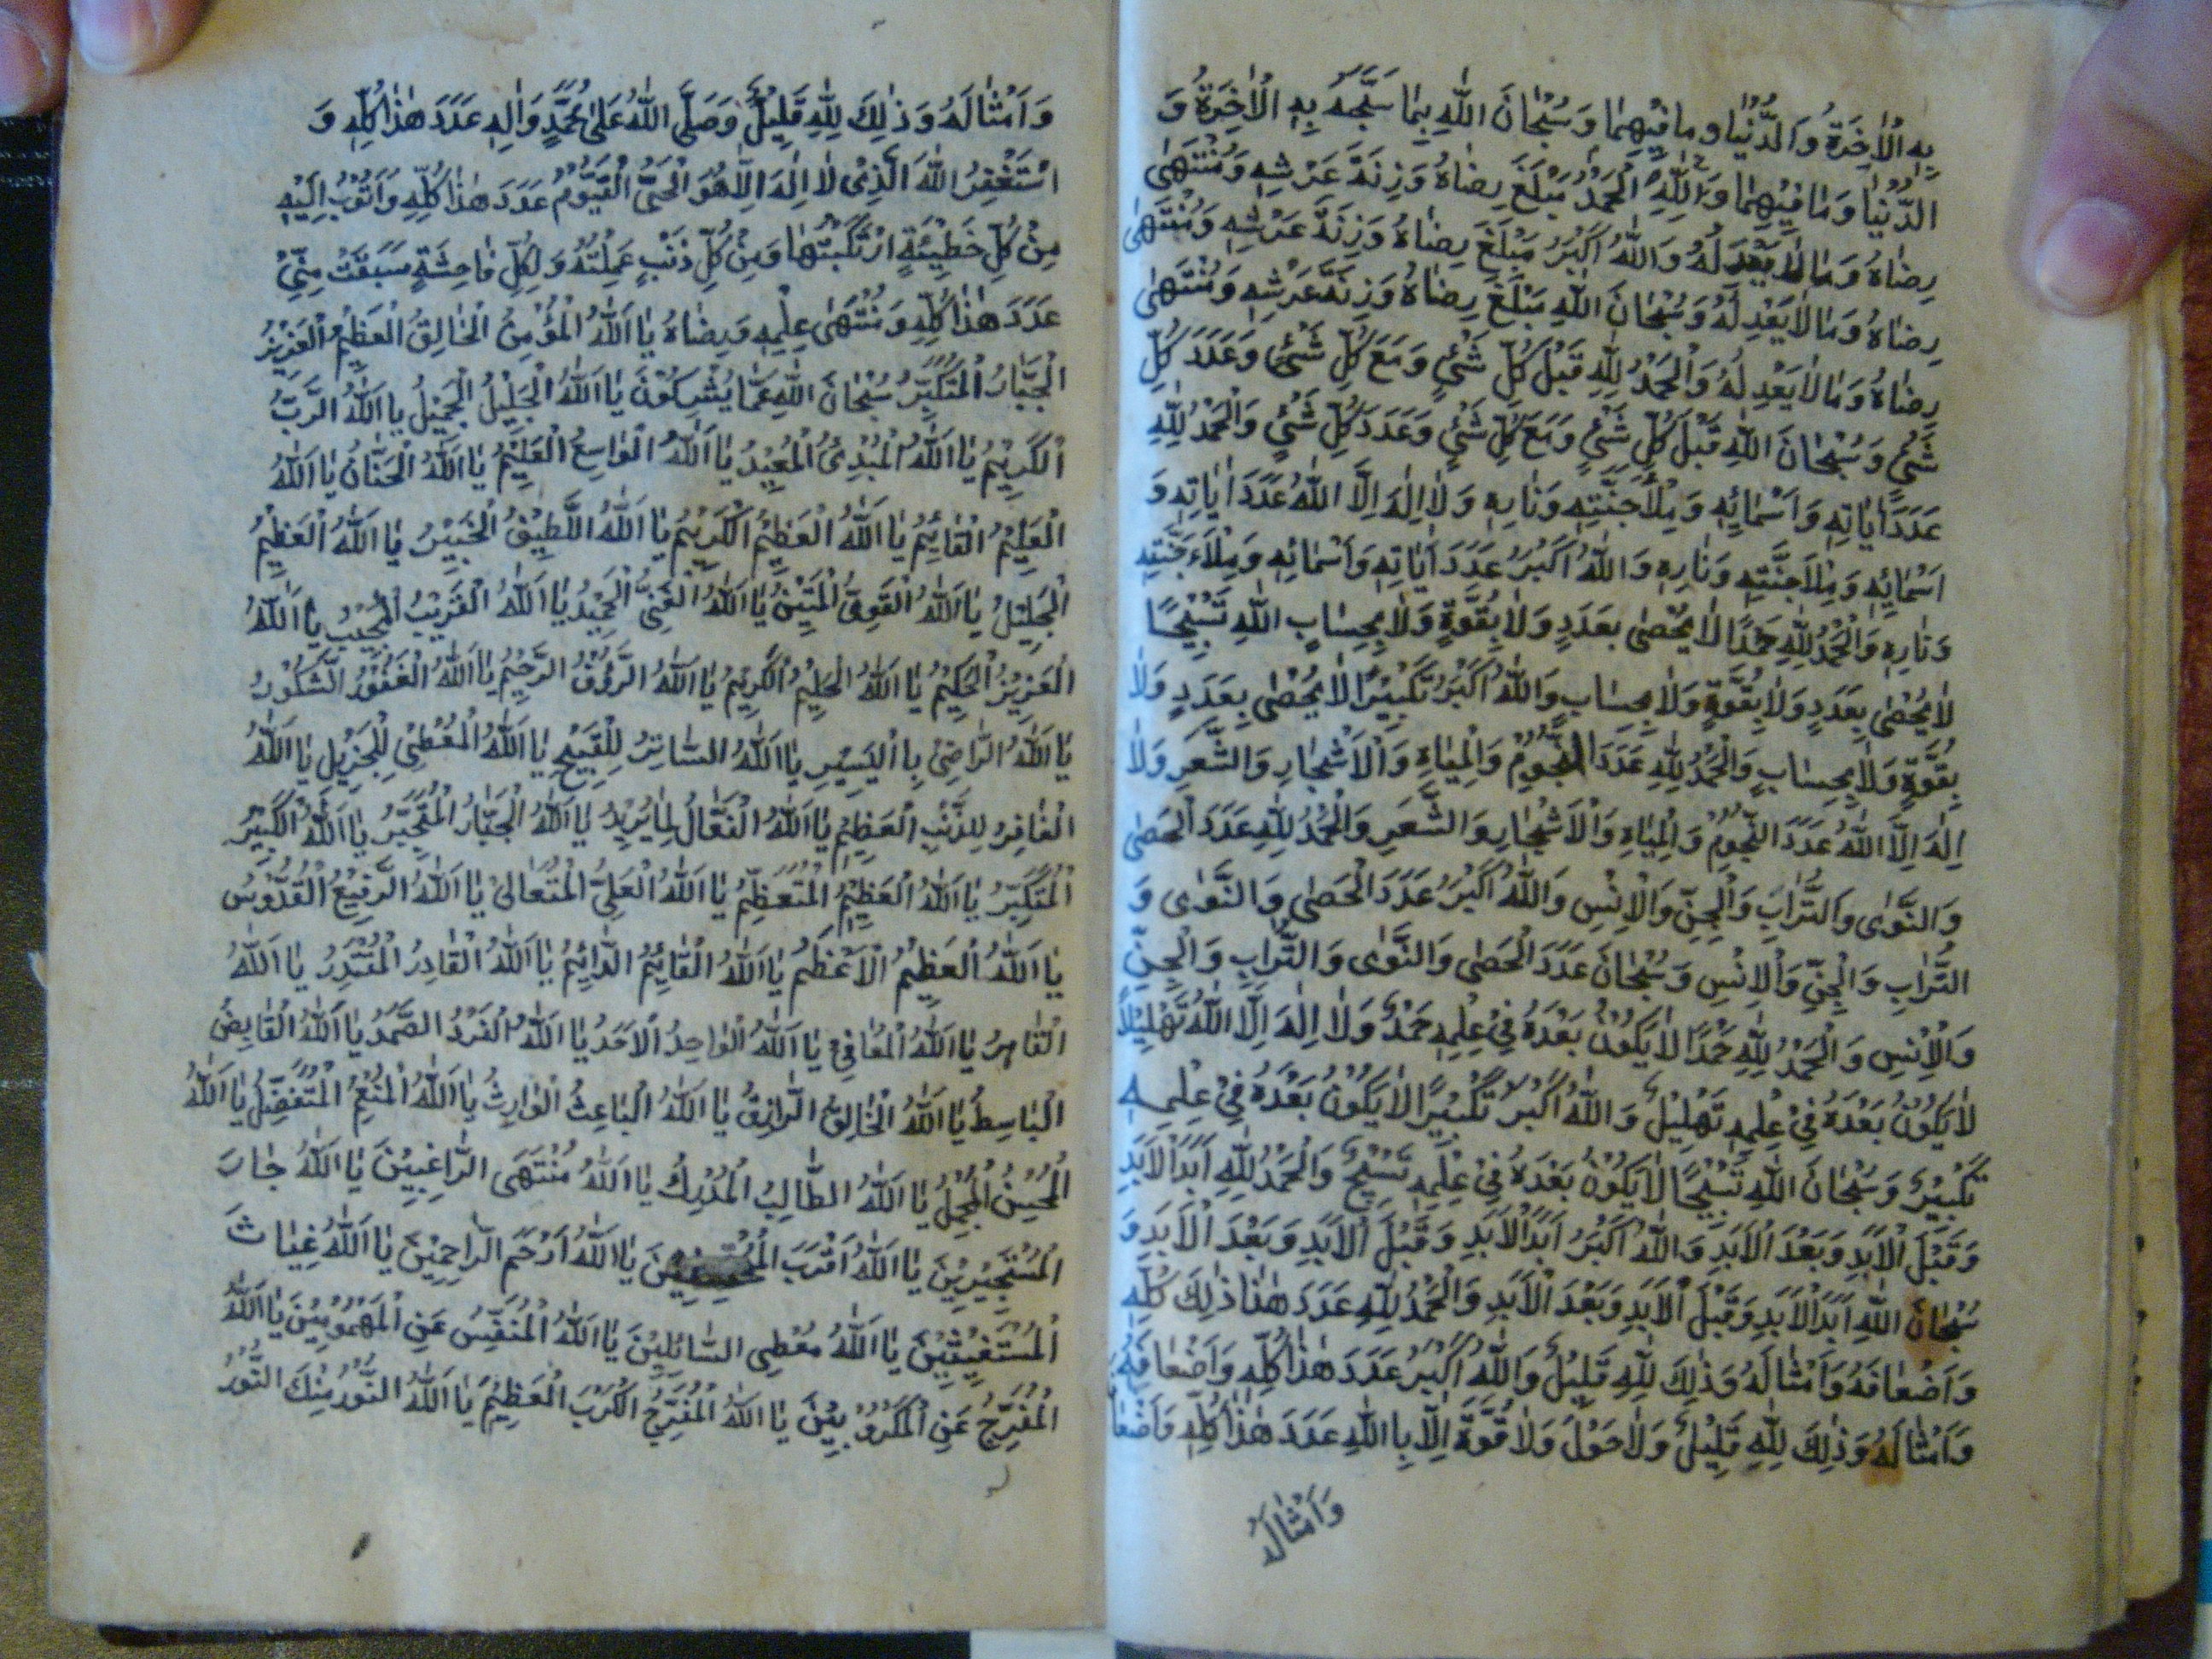 بِهِ الْاٰخِرَةُ وَالدُّنْيٰا وَمٰا فِيْهِمٰا وَسُبْحٰانَ اللّٰهِ بِمٰا سَبَّحَهُ بِهِ الْاٰخِرَةُ وَ
الدُّنْيٰا وَمٰا فِيْهِمٰا وَلِلّٰهِ الْحَمْدُ مَبْلَغَ رِضٰاهُ وَزِنَةَ عَرْشِهِ وَمُنْتَهىٰ
رِضٰاهُ وَمٰا لٰا يَعْدِلَهُ وَاللّٰهُ اَكْبَرُ مَبْلَغَ رِضٰاهُ وَزِنَةَ عَرْشِهِ وَمُنْتَهىٰ
رِضٰاهُ وَمٰا لٰا يَعْدِلَهُ وَسُبْحٰانَ اللّٰهِ مَبْلَغَ رِضٰاهُ وَزِنَةَ عَرْشِهِ وَمُنْتَهىٰ
رِضٰاهُ وَمٰا لٰا يَعْدِلُهُ وَالْحَمْدُ لِلّٰهِ قَبْلَ كُلِّ شَئْيٍ وَمَعَ كُلِّ شَئْيٍ وَعَدَدَ كُلِّ
شَئْيٍ وَسُبْحٰانَ اللّٰهِ قَبْلَ كُلِّ شَئْيٍ وَمَعَ كُلِّ شَئْيٍ وَعَدَدَ كُلِّ شَئْيٍ وَالْحَمْدُ لِلّٰهِ
عَدَدَ اٰيٰاتِهِ وَاَسْمٰائِهِ وَمِلْاَ جَنَّتِهِ وَنٰارِهِ وَلٰا اِلٰهَ اِلَّا اللّٰهُ عَدَدَ اٰيٰاتِهِ وَ
اَسْمٰائِهِ وَمِلْاَ جَنَّتِهِ وَنٰارِهِ وَاللّٰهُ اَكْبَرُ عَدَدَ اٰيٰاتِهِ وَاَسْمٰائِهِ وَمِلْاَءَ جَنَّتِهِ
وَنٰارِهِ وَالْحَمْدُ لِلّٰهِ حَمْدًا لٰا يُحْصٰى بِعَدَدٍ وَلٰا بِقُوَّةٍ وَلٰا بِحِسٰابٍ اللّٰهِ تَسْبِيْحًا
لٰا يُحْصٰى بِعَدَدٍ وَلٰا بِقُوَّةٍ وَلٰا بِحِسٰابٍ وَاللّٰهُ اَكْبَرُ تَكْبِيْرًا لٰا يُحْصٰى بِعَدَدٍ وَلٰا
بِقُوَّةٍ وَلٰا بِحِسٰابٍ وَالْحَمْدُ لِلّٰهِ عَدَدَ النُّجُوْمُ وَالْمِيٰاهِ وَالْاَشْجٰارِ وَالشَّعَرِ وَلٰا
اِلٰهَ اِلَّا اللّٰهُ عَدَدَ النُّجُوْمُ وَالْمِيٰاهِ وَالْاَشْجٰارِ وَالشَّعَرِ وَالْحَمْدُ لِلّٰهِ عَدَدَ الْحَصٰى
وَالنَّوٰى وَالتُّرٰابَ وَالْجِنِّ وَالْاِنْسِ وَاللّٰهُ اَكْبَرُ عَدَدَ الْحَصٰى وَالنَّوٰى وَ
التُّرٰابِ وَالْجِنِّ وَالْاِنْسِ وَسُبْحٰانَ عَدَدَ الْحَصٰى وَالنَّوٰى وَالتُّرٰابِ وَالْجِنِّ
وَالْاِنْسِ وَالْحَمْدُ لِلّٰهِ حَمْدًا لٰا يَكُوْنُ بَعْدَهُ فِيْ عِلْمِهِ حَمْدٌ وَلٰا اِلٰهَ اِلَّا اللّٰهُ تَهْلِيْلًا
لٰا يَكُوْنُ بَعْدَهُ فِيْ عِلْمِهِ تَهْلِيْلٌ وَاللّٰهُ اَكْبَرُ تَكْبِيْرًا لٰا يَكُوْنُ بَعْدَهُ فِيْ عِلْمِهِ
تَكْبِيْرٌ وَسُبْحٰانَ اللّٰهِ تَسْبِيْحًا لٰا يَكُوْنُ بَعْدَهُ فِيْ عِلْمِهِ تَسْبِيْحٌ وَالْحَمْدُ لِلّٰهِ اَبَدَ الْاَبَدِ
وَقَبْلَ الْاَبَدِ وَبَعْدَ الْاَبَدِ وَاللّٰهُ اَكْبَرُ اَبَدَ الْاَبَدِ وَقَبْلَ الْاَبَدِ وَبَعْدَ الْاَبَدِ وَ
سُبْحٰانَ اللّٰهِ اَبَدَ الْاَبَدِ وَقَبْلَ الْاَبَدِ وَبَعْدَ الْاَبَدِ وَالْحَمْدُ لِلّٰهِ عَدَدَ هٰذٰا ذٰلِكَ كُلِّهِ
وَاَضْعٰافَهُ وَاَمْثٰالَهُ وَذٰلِكَ لِلّٰهِ قَلِيْلٌ وَاللّٰهُ اَكْبَرُ عَدَدَ هٰذٰا كُلِّهِ وَاَضْعٰافَهُ
وَاَمْثٰالَهُ وَذٰلِكَ لِلّٰهِ قَلِيْلٌ وَلٰا حَوْلَ وَلٰا قُوَّةَ اِلّٰا بِاللّٰهِ عَدَدَ هٰذٰا كُلِّهِ وَاَضْعٰا
وَاَمْثٰالَهُ
وَاَمْثٰالَهُ وَذٰلِكَ لِلّٰهِ قَلِيْلٌ وَصَلَّى اللّٰهُ عَلىٰ مُحَمَّدٍ وَاٰلِهِ عَدَدَ هٰذٰا كُلِّهِ وَ
اَسْتَغْفِرُ اللّٰهَ الَّذِىْ لٰا اِلٰهَ اِلّٰا هُوَ الْحَىُّ الْقَيُّوْمُ عَدَدَ هٰذٰا كُلِّهِ وَاَتُوْبُ اِلَيْهِ
مِنْ كُلِّ خَطِيْئَةٍ ارْتَكَبْتُهٰا وَمِنْ كُلِّ ذَنْبٍ عَمِلْتُهُ وَلِكُلِّ فٰاحِشَةٍ سَبَقَتْ مِنِّيْ
عَدَدَ هٰذٰا كُلِّهِ وَمُنْتَهىٰ عِلْمِهِ وَرِضٰاهُ يٰا اَللّٰهُ الْمُؤْمِنُ الْخٰالِقُ الْعَظِيْمُ الْعَزِيْزُ
الْجَبّٰارُ الْمُتَكَبِّرُ سُبْحٰانَ اللّٰهِ عَمّٰا يُشْرِكُوْنَ يٰا اَللّٰهُ الْجَلِيْلُ الْجَمِيْلُ يٰا اَللّٰهُ الرَّبُّ
الْكَرِيْمُ يٰا اَللّٰهُ الْمُبْدِىُٔ الْمُعِيْدُ يٰا اَللّٰهُ الْوٰاسِعُ الْعَلِيْمُ يٰا اَللّٰهُ الْحَنّٰانُ يٰا اَللّٰهُ
الْعَلِيْمُ الْقٰائِمُ يٰا اَللّٰهُ الْعَظِيْمُ الْكَرِيْمُ يٰا اَللّٰهُ اللَّطِيْفُ الْخَبِيْرُ يٰا اَللّٰهُ الْعَظِيْمُ
الْجَلِيْلُ يٰا اَللّٰهُ الْقَوِىُّ الْمَتِيْنُ يٰا اَللّٰهُ الْغَنِىُّ الْحَمِيْدُ يٰا اَللّٰهُ الْقَرِيْبُ الْمُجِيْبُ يٰا اَللّٰهُ
الْعَزِيْزُ الْحَكِيْمُ يٰا اَللّٰهُ الْحَلِيْمُ الْكَرِيْمُ يٰا اَللّٰهُ الرَّؤُفُ الرَّحِيْمُ يٰا اَللّٰهُ الْغَفُوْرُ الشَّكُوْرُ
يٰا اَللّٰهُ الرّٰاضِيْ بِالْيَسِيْرِ يٰا اَللّٰهُ السّٰاتِرُ لِلْقَبِيْحِ يٰا اَللّٰهُ الْمُعْطِيْ لِلْجَزِيْلِ يٰا اَللّٰهُ
الْغٰافِرُ لِلذَّنْبِ الْعَظِيْمِ يٰا اَللّٰهُ الْفَعّٰالُ لِمٰا يُرِيْدُ يٰا اَللّٰهُ الْجَبّٰارُ الْمُتَجَبِّرُ يٰا اَللّٰهُ الْكَبِيْرُ
الْمُتَكَبِّرُ يٰا اَللّٰهُ الْعَظِيْمُ الْمُتَعَظِّمُ يٰا اَللّٰهُ الْعَلِىُّ الْمُتَعٰالىٰ يٰا اَللّٰهُ الرَّفِيْعُ الْقُدُّوْسُ
يٰا اَللّٰهُ الْعَظِيْمُ الْاَعْظَمُ يٰا اَللّٰهُ الْقٰائِمُ الدّٰائِمُ يٰا اَللّٰهُ الْقٰادِرُ الْمُقْتَدِرُ يٰا اَللّٰهُ
الْقٰاهِرُ يٰا اَللّٰهُ الْمُعٰافِيْ يٰا اَللّٰهُ الْوٰاحِدُ الْاَحَدُ يٰا اَللّٰهُ الْفَرْدُ الصَّمَدُ يٰا اَللّٰهُ الْقٰابِضُ
الْبٰاسِطُ يٰا اَللّٰهُ الْخٰالِقُ الرّٰازِقُ يٰا اَللّٰهُ الْبٰاعِثُ الْوٰارِثُ يٰا اَللّٰهُ الْمُنْعِمُ الْمُتَفَضِّلُ يٰا اَللّٰهُ
الْمُحْسِنُ الْمُجْمِلُ يٰا اَللّٰهُ الطّٰالِبُ الْمُدْرِكُ يٰا اَللّٰهُ مُنْتَهَى الرّٰاغِبِيْنَ يٰا اَللّٰهُ جٰارَ
الْمُسْتَجِيْرِيْنَ يٰا اَللّٰهُ اَقْرَبَ يٰا اَللّٰهُ اَرْحَمَ الرّٰاحِمِيْنَ يٰا اَللّٰهُ غِيٰاثَ
الْمُسْتَغِيْثِيْنَ يٰا اَللّٰهُ مُعْطِى السّٰائِلِيْنَ يٰا اَللّٰهُ الْمُنَفِّسُ عَنِ الْمَهْمُوْمِيْنَ يٰا اَللّٰهُ
الْمُفَرِّجُ عَنِ الْمَكْرُوْبِيْنَ يٰا اَللّٰهُ الْمُفَرِّجُ الْكَرْبَ الْعَظِيْمَ يٰا اَللّٰهُ النُّوْرُ مِنْكَ النُّوْرُ